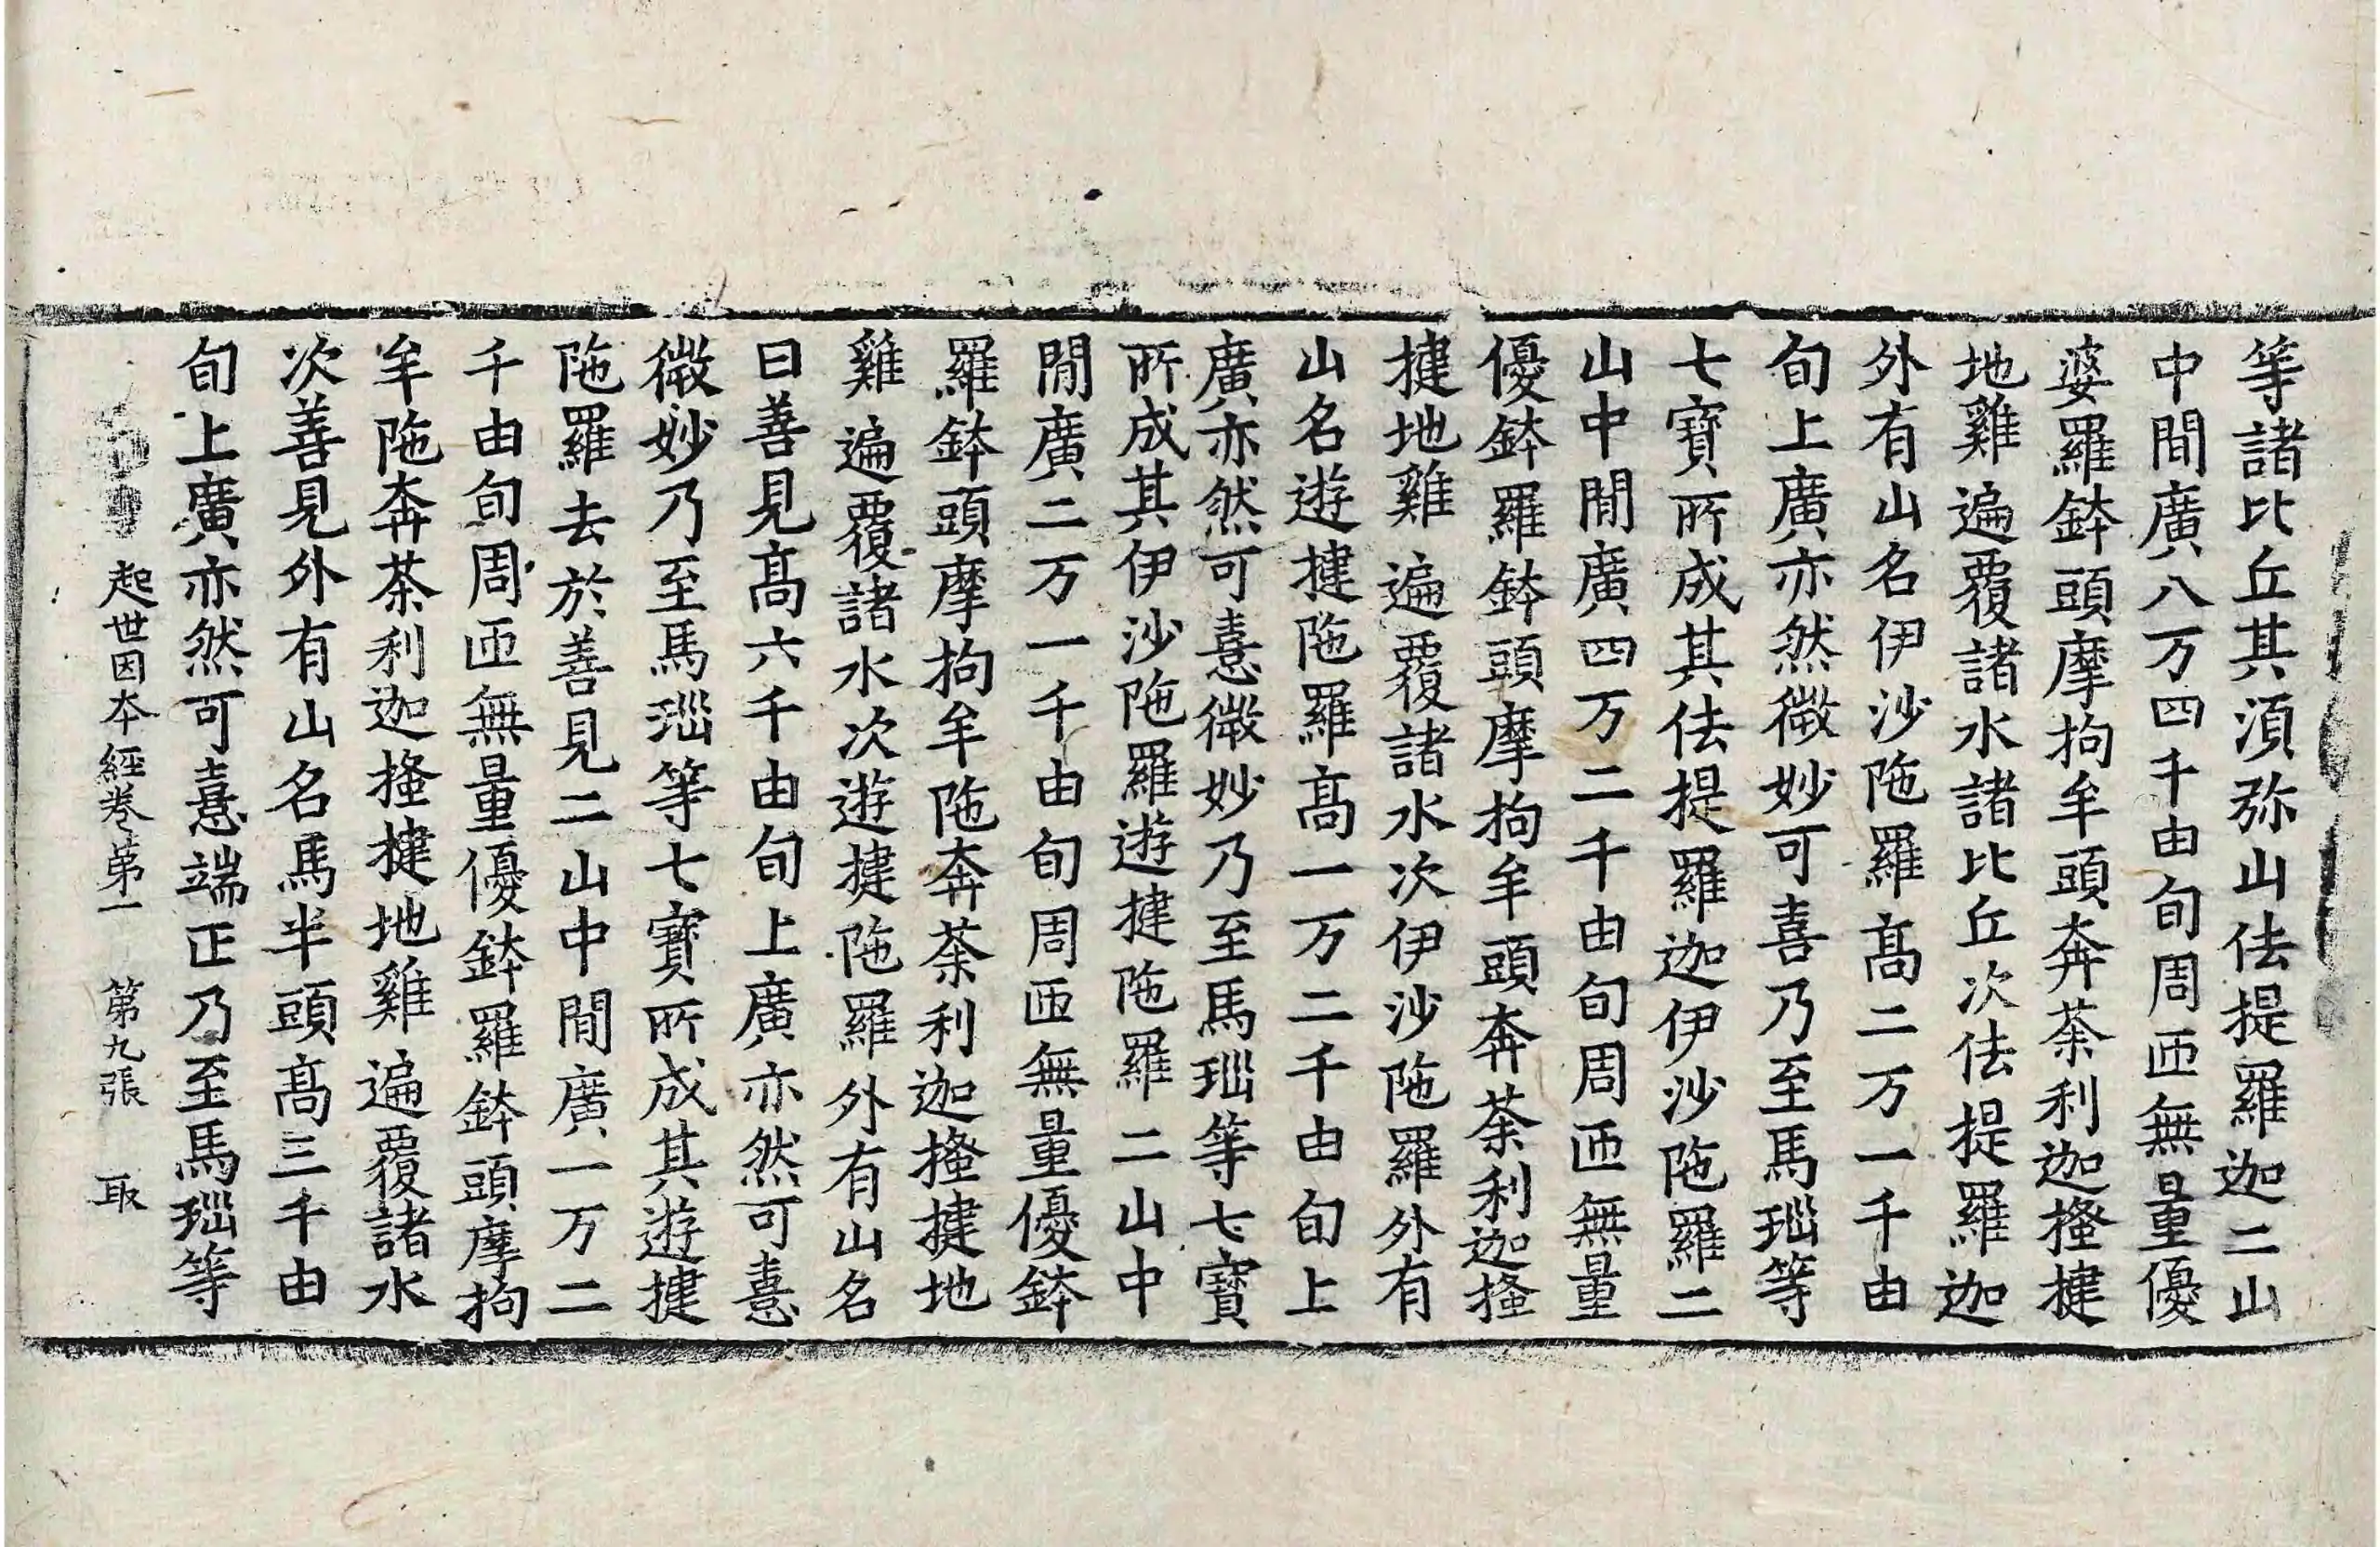 等諸比丘其湏弥山佉提羅迦二山
中間廣八万四千由旬周匝無量優
婆羅鉢頭摩拘牟頭奔荼利迦搔揵
地雞遍覆諸水諸比丘次佉提羅迦
外有山名伊沙陁羅高二万一千由
旬上廣亦然微妙可喜乃至馬瑙等
七寶所成其佉提羅迦伊沙陁羅二
山中閒廣四万二千由旬周匝無量
優鉢羅鉢頭摩拘牟頭奔荼利迦搔
揵地雞遍覆諸水次伊沙陁羅外有
山名遊揵陁羅高一万二千由旬上
廣亦然可憙微妙乃至馬瑙等七寶
所成其伊沙陁羅遊揵陁羅二山中
閒廣二万一千由旬周匝無量優鉢
羅鉢頭摩拘牟陁奔荼利迦搔揵地
雞遍覆諸水次遊揵陁羅外有山名
曰善見高六千由旬上廣亦然可憙
微妙乃至馬瑙等七寶所成其遊揵
陁羅去於善見二山中閒廣一万二
千由旬周匝無量優鉢羅鉢頭摩拘
牟陁奔荼利迦搔揵地雞遍覆諸水
次善見外有山名馬半頭高三千由
旬上廣亦然可憙端正乃至馬瑙等
起世因本經卷第一 第九張 取